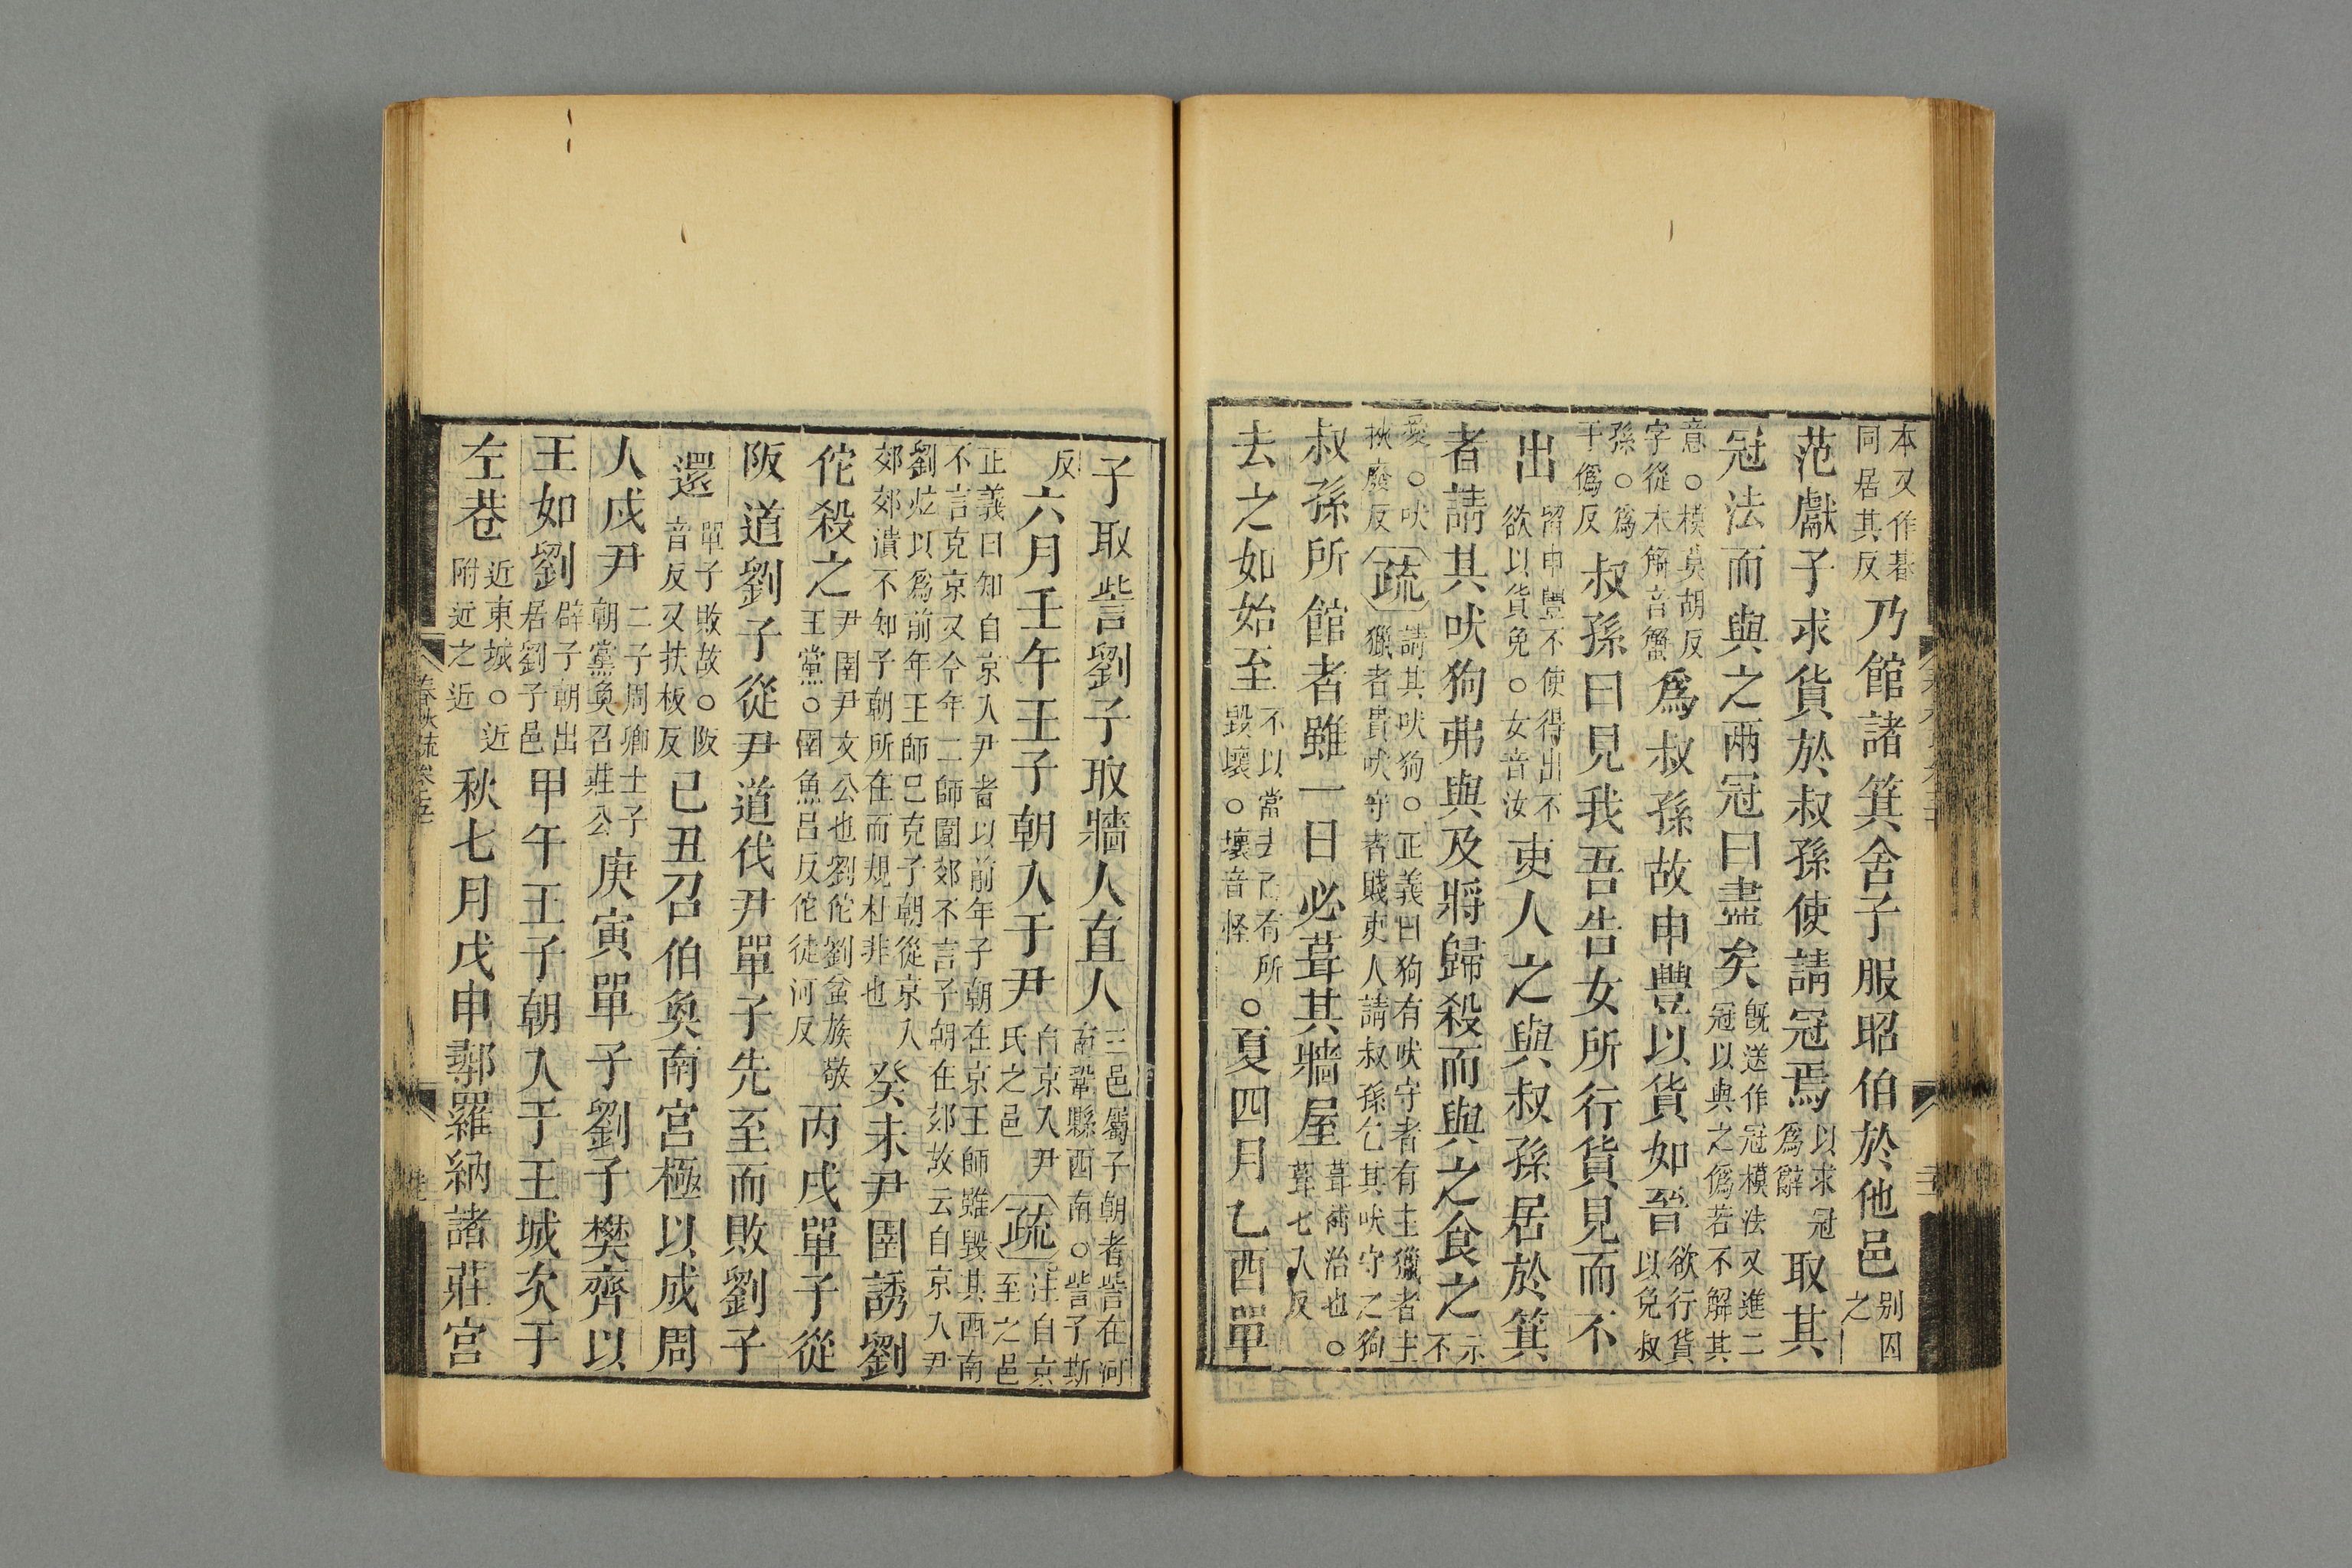 本又作朞同居其反乃館諸箕舍子服昭伯於他邑別囚之
范獻子求貨於叔孫使請冠焉以求冠爲辭取其
冠法而與之兩冠曰盡矣旣送作冠模法又進二冠以與之僞若不解其
意○模莫胡反字從木解音蟹爲叔孫故申豐以貨如晉欲行貨以免叔
孫○爲于僞反叔孫曰見我吾告女所行貨見而不
出留申豐不使得出不欲以貨免○女音汝吏人之與叔孫居於箕
者請其吠狗弗與及將歸殺而與之食之示不
愛○吠扶廢反疏請其吠狗○正義曰狗有吠守者有主獵者主獵者貴吠守者賤吏人請叔孫乞其吠守之狗
叔孫所館者雖一日必葺其牆屋葺補治也○葺七入反
去之如始至不以當去而有所毀壞○壞音怪○夏四月乙酉單
子取訾劉子取牆人直人三邑屬子朝者訾在河南鞏縣西南○訾子斯
反六月壬午王子朝入于尹自京入尹氏之邑疏注自京至之邑
正義曰知自京入尹者以前年子朝在京王師雖毀其西南不言克京又今年二師圍郊不言子朝在郊故云自京入尹
劉炫以爲前年王師已克子朝從京入郊郊潰不知子朝所在而規杜非也癸未尹圉誘劉
佗殺之尹圉尹文公也劉佗劉蚠族敬王黨○圉魚呂反佗徒河反丙戌單子從
阪道劉子從尹道伐尹單子先至而敗劉子
還單子敗故○阪音反又扶板反己丑召伯奐南宮極以成周
人戍尹二子周卿士子朝黨奐召莊公庚寅單子劉子樊齊以
王如劉辟子朝出居劉子邑甲午王子朝入于王城次于
左巷近東城○近附近之近秋七月戊申鄩羅納諸莊宮
春秋疏卷五十